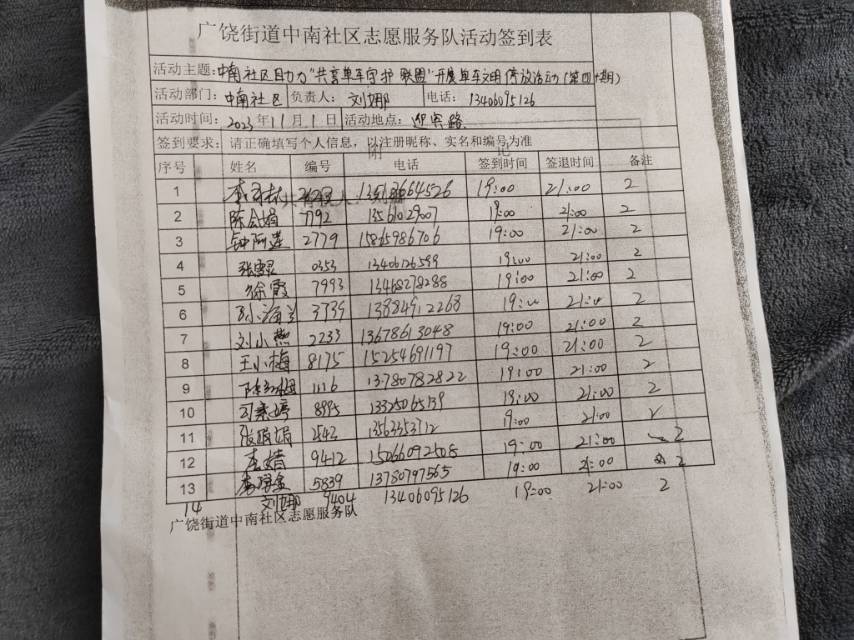 广饶街道中南社区志愿服务队活动签到表
活动主题：中南社区助力"共享单车守护联盟"开展单车文明停放活动（第四十期）
活动部门：中南社区 负责人：刘娜 电话：13406095126
活动时间：2023年11月1日 活动地点：迎宾路
签到要求：请正确填写个人信息，以注册昵称、实名和编号为准
序号 姓名 编号 电话 签到时间 签退时间 备注
1 19:00 21:00 2
2 陈会娟 7792 13561029007 19:00 21:00 2
3 钟阿莲 2779 15865986706 19:00 21:00 2
4 0353 13406126599 19:00 21:00 2
5 徐霞 7993 13468278288 19:00 21:00 2
6 孙海兰 3739 13884912268 19:00 21:00 2
7 刘小燕 2233 13678613048 19:00 21:00 2
8 王小梅 8175 15254691197 19:00 21:00 2
9 1116 13780782822 19:00 21:00 2
10 8995 13325065139 19:00 21:00 2
11 2542 13563353712 19:00 21:00 2
12 李婧 9412 15066092508 19:00 21:00 2
13 5839 13780797565 19:00 21:00 2
14 刘娜 9404 13406095126 19:00 21:00 2
广饶街道中南社区志愿服务队